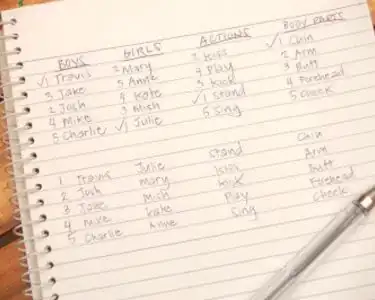 BOYS GIRLS ACTIONS BODY PARTS
✓1 Travis 2 Mary 2 Kiss ✓1 Chin
3 Jake 5 Anne 4 Play 2 Arm
2 Josh 4 Kate 3 Kick 3 Butt
4 Mike 3 Mish ✓1 Stand 4 Forehead
5 Charlie ✓1 Julie 5 Sing 5 Cheek
1 Travis Julie Stand Chin
2 Josh Mary Kiss Arm
3 Jake Mish Kick Butt
4 Mike Kate Play Forehead
5 Charlie Anne Sing Cheek